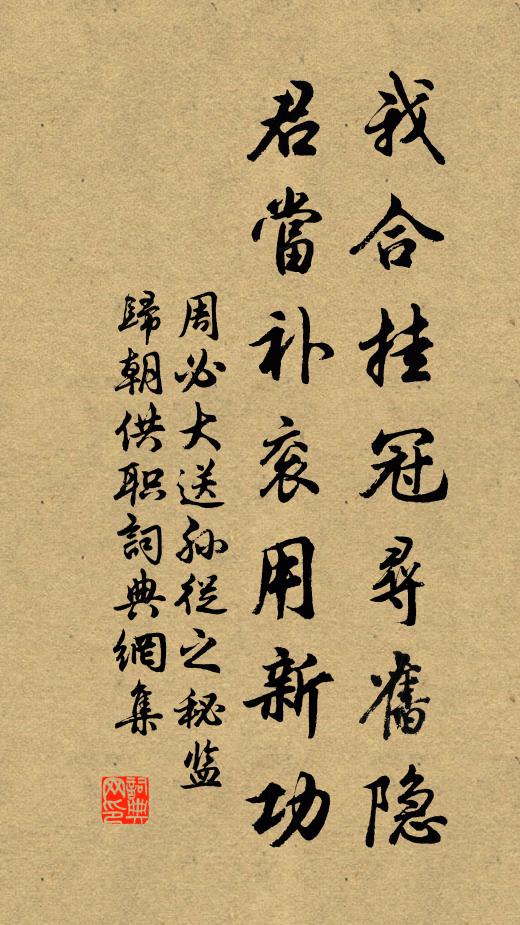 我合挂冠寻舊隐
君當补衮用新功
周必大送孙從之秘监
歸朝供职詞典網集
詞典网印